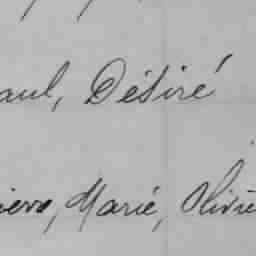 aul, Désiré
iers, Marie, Olivie